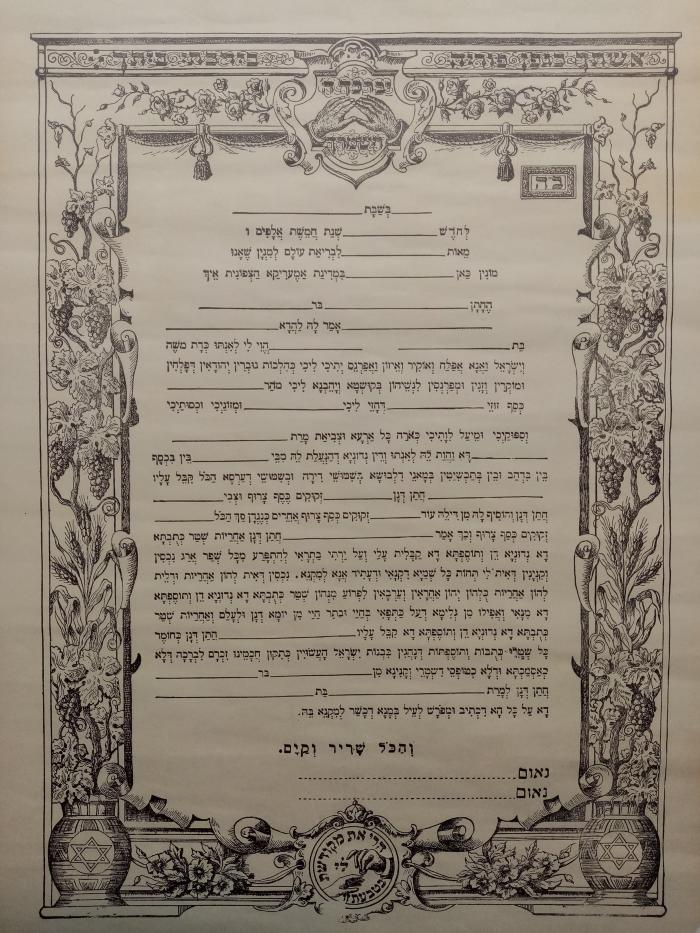 אשתך כגפן פוריה
בירכתי ביתך
יברכך ה׳
וישמרך
ב״ה
בְּשַׁבָּת
לְחֹדֶשׁ שְׁנַת חֲמֵשֶׁת אֲלָפִים וּ
מֵאוֹת לִבְרִיאַת עוֹלָם לְמִנְיָן שֶׁאָנוּ
מוֹנִין כַּאן בִּמְדִינַת אַמֶערִיקַא הַצְפוֹנִית אֵיךְ
הֶחָתָן בַּר
אֲמַר לָהּ לַהֲדָא
בַּת הֲוִי לִי לְאִנְתּוּ כְּדַת מֹשֶׁה
וְיִשְׂרָאֵל וַאֲנָא אֶפְלַח וְאוֹקִיר וְאֵיזוּן וַאֲפַרְנֵס יָתִיכִי לִיכִי כְּהִלְכוֹת גּוּבְרִין יְהוּדָאִין דְּפָלְחִין
וּמוֹקְרִין וְזָנִין וּמְפַרְנְסִין לִנְשֵׁיהוֹן בְּקוּשְׁטָא וְיָהֵבְנָא לִיכִי מֹהַר
כְּסַף זוּזֵי דְּחָזֵי לִיכִי וּמְזוֹנַיְכִי וּכְסוּתַיְכִי
וְסִפּוּקַיְכִי וּמֵיעַל לְוָתַיְכִי כְּאֹרַח כָּל אַרְעָא וּצְבִיאַת מָרַת
דָּא וַהֲוַת לֵהּ לְאִנְתּוּ וְדֵין נְדוּנְיָא דְּהַנְעֲלַת לֵהּ מִבֵּי בֵּין בִּכְסַף
בֵּין בִּדְהַב וּבֵין בְּתַכְשִׁיטִין בְּמָאנֵי דִלְבוּשָׁא בְּשִׁמּוּשֵׁי דִירָה וּבְשִׁמּוּשֵׁי דְעַרְסָא הַכֹּל קִבֵּל עָלָיו
חֲתַן דְּנָן זְקוּקִים כֶּסֶף צָרוּף וּצְבִי
חֲתַן דְּנָן וְהוֹסִיף לָהּ מִן דִּילֵהּ עוֹד זְקוּקִים כֶּסֶף צָרוּף אֲחֵרִים כְּנֶגְדָּן סַךְ הַכֹּל
זְקוּקִים כֶּסֶף צָרוּף וְכָךְ אָמַר חֲתַן דְּנָן אַחֲרָיוּת שְׁטַר כְּתֻבְּתָּא
דָא נְדוּנְיָא דֵן וְתוֹסֶפְתָּא דָא קַבָּלִית עָלַי וְעַל יַרְתַי בַּתְרָאִי לְהִתְפָּרַע מִכָּל שְׁפַר אֲרַג נִכְסִין
וְקִנְיָנִין דְּאִית לִי תְּחוֹת כָּל שְׁמַיָּא דִּקְנָאִי וּדְעָתִיד אֲנָא לְמִקְנָא. נִכְסִין דְּאִית לְהוֹן אַחֲרָיוּת וּדְלֵית
לְהוֹן אַחֲרָיוּת כֻּלְּהוֹן יְהוֹן אַחְרָאִין וְעַרְבָאִין לִפְרוֹעַ מִנְּהוֹן שְׁטַר כְּתֻבְּתָּא דָא נְדוּנְיָא דֵן וְתוֹסֶפְתָּא
דָא מִנָּאי וַאֲפִילוּ מִן גְּלִימָא דְעַל כַּתְפָאִי בְּחַיַּי וּבָתַר חַיַּי מִן יוֹמָא דְּנָן וּלְעָלַם וְאַחֲרָיוּת שְׁטַר
כְּתֻבְּתָּא דָא נְדוּנְיָא דֵן וְתוֹסֶפְתָּא דָא קִבֵּל עָלָיו הֶחָתָן דְּנָן כְּחוֹמֶר
כָּל שִׁטְרֵי כְּתֻבּוֹת וְתוֹסֶפְתּוֹת דְּנָהֲגִין בִּבְנוֹת יִשְׂרָאֵל הָעֲשׂוּיִן כְּתִקּוּן חֲכָמֵינוּ זִכְרָם לִבְרָכָה דְּלָא
כְּאַסְמַכְתָּא וּדְלָא כְּטוֹפְסֵי דִשְׁטָרֵי וְקָנִינָא מִן בַּר
חֲתַן דְּנָן לְמָרַת בַּת
דָא עַל כָּל הָא דִּכְתִיב וּמְפֹרָשׁ לְעֵיל בְּמָנָא דְּכָשֵׁר לְמִקְנְיָא בֵּהּ.
וְהַכֹּל שָׁרִיר וְקַיָּם.
נאום
נאום
הרי את מקודשת
לי
בטבעת זו